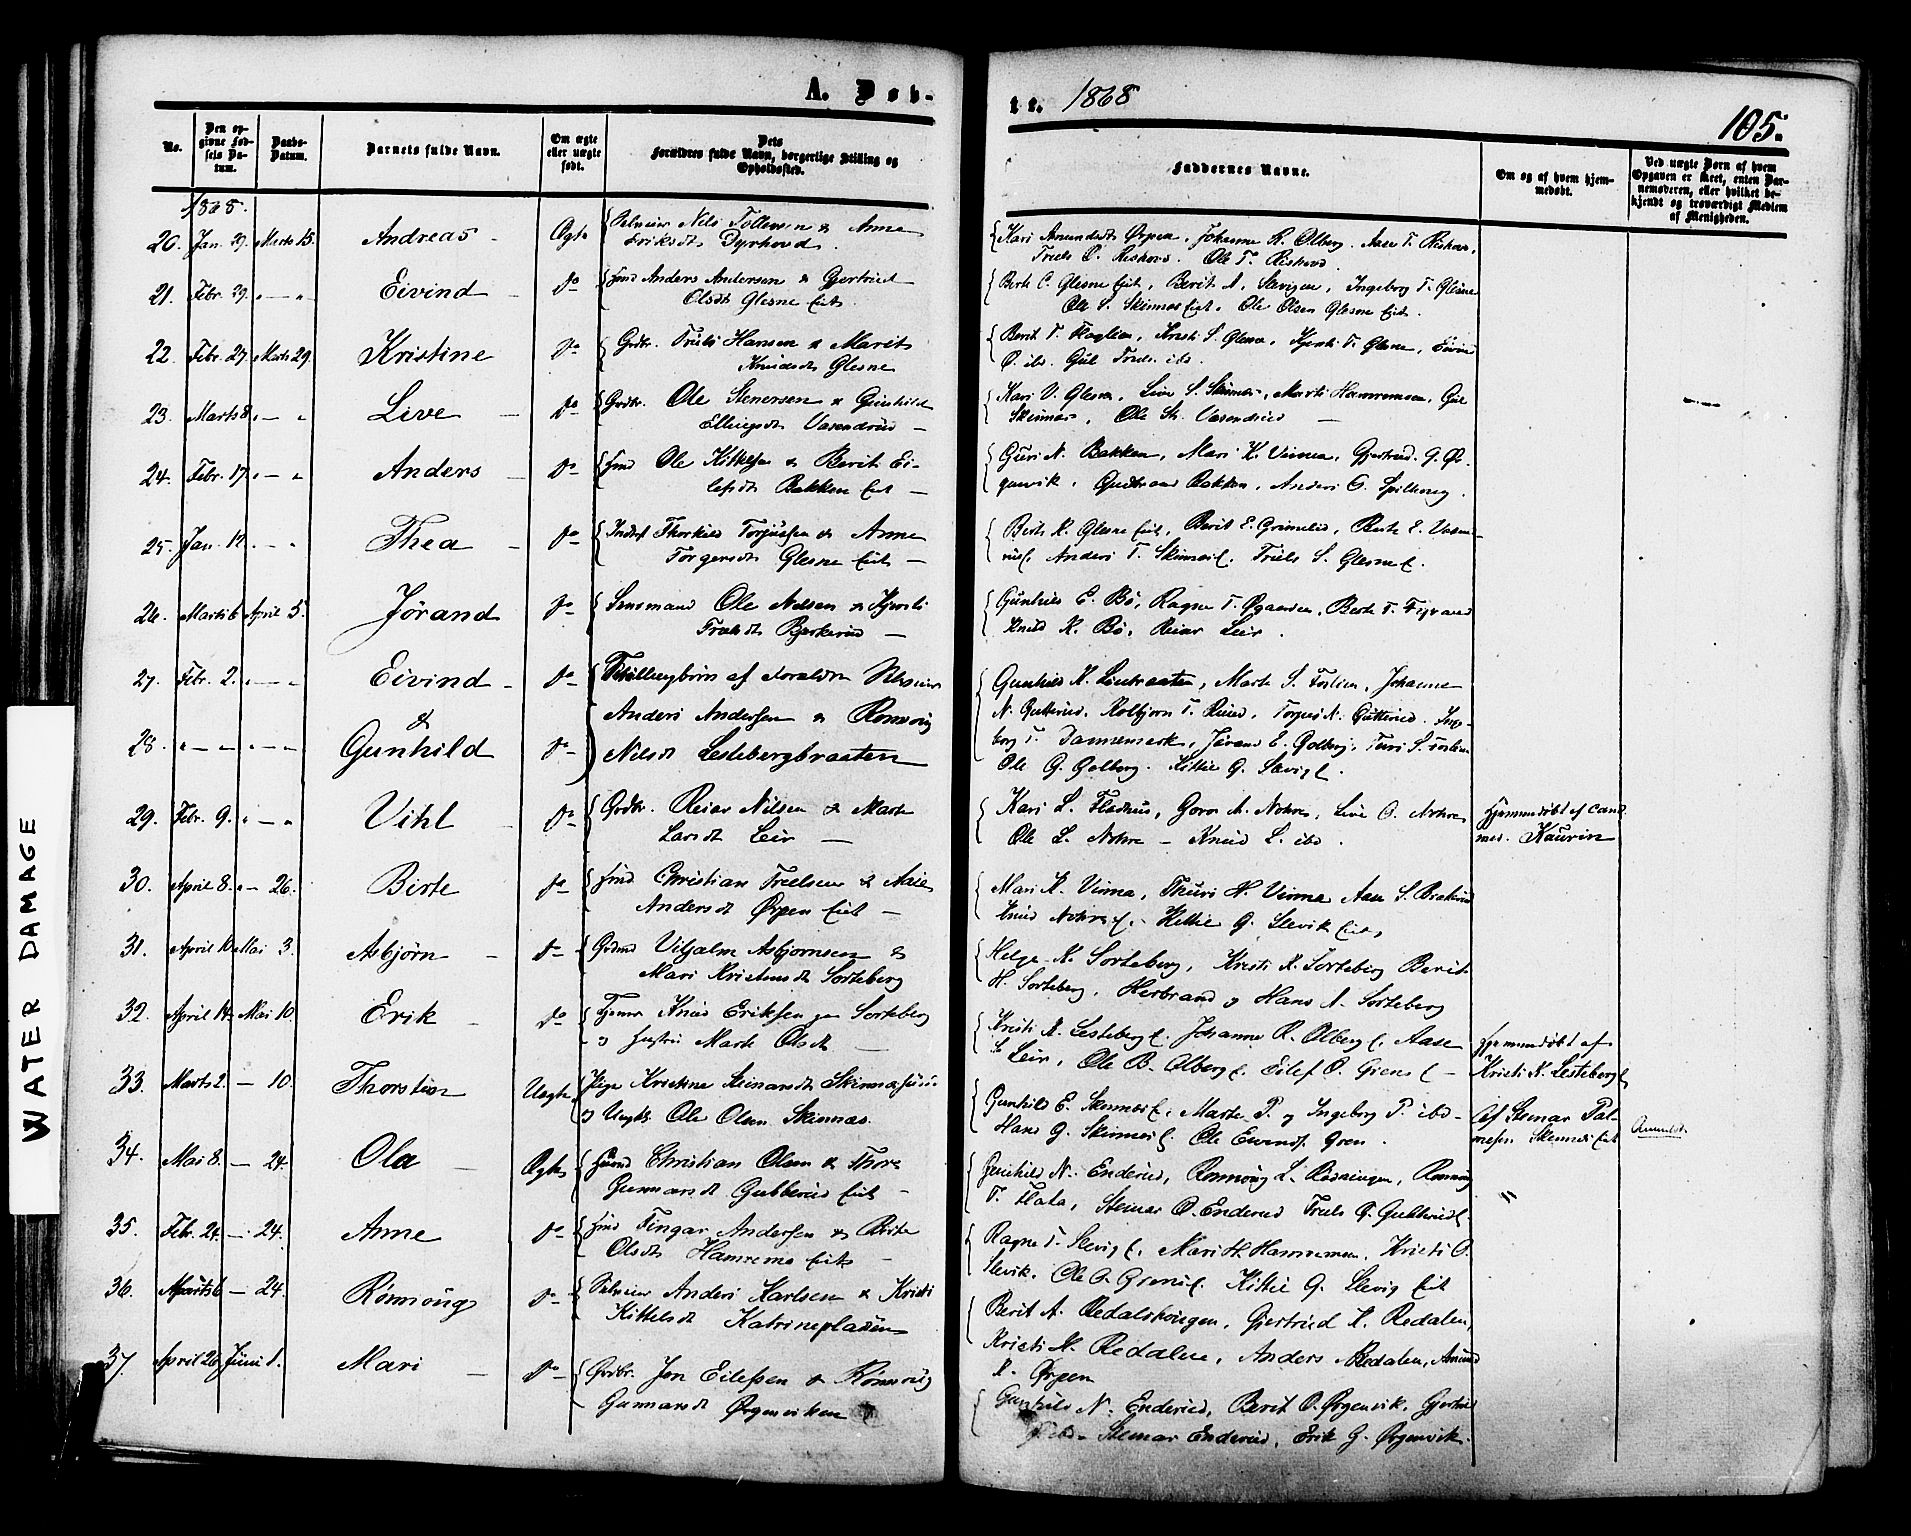 A. Døb-
te. 1868
105.
No.
Den op-
givne Fød-
sels Da-
tum.
Daabs-
Datum.
Barnets fulde Navn.
Om ægte
eller uægte
født.
Dets
Forældres fulde Navn, borgerlige Stilling og
Opholdssted.
Faddernes Navne.
Om og af hvem hjem-
medøbt.
Ved uægte Børn af hvem
Opgaven er skeet, enten Bar-
nemoderen, eller hvilket be-
kjendt og troværdigt Medlem
af Menigheden.
1868.
20. Jan. 29. Marts 15. Andreas - Ægte Nils Tollefsen & Anne
Eriksdt Dyrhovd
Kari Amundsdt Ørpen, Johanne K. Olberg, Aase T. Riskovd,
Truls O. Riskovd. Ole T. Riskovd.
21. Febr. 29. " — " Eivind - do Hmd Anders Andersen & Gjertrud
Olsdt Glesne Eiet.
Berte C. Glesne Eiet, Berit A. Slevigen, Ingeborg T. Glesne
Ole S. Skinnes Eiet, Ole Olsen Glesne Eiet.
22. Febr. 27. Marts 29. Kristine do Grdbr. Truls Hansen & Marit
Knudsdt Glesne
Berit T. Haglien, Kristi S. Glesne, Kjersti T. Glesne, Eivin
O. ibd. Gul Truls. ibd.
23. Marts 8. " — " Live - do Grdbr. Ole Stenersen & Gunhild
Ellingsdt Vasendrud —
Kari V. Glesne, Live S. Skinnes, Marti Hamremoen, Gul
Skinnes, Ole St. Vasendrud —
24. Febr. 17. " — " Anders - do Hmd Ole Kittelsen & Berit Ei-
lefsdt Bakken Eiet —
Guri N. Bakken, Mari K. Vinna, Gjertrud G. Ør-
genvik, Gudbrand Bakken, Anders O. Spilhoug.
25. Jan. 12. " — " Thea - do Inderst Thorkild Torjussen & Anne
Torgersdt Glesne Eiet —
Berte K. Glesne Eiet, Berit E. Grimelid, Berte E. Vasen-
rud, Anders T. Skinnes E. Truls S. Glesne E.
26. Marts 6 April 5. Jörand do Lensmand Ole Nilsen & Kjersti
Trulsdt Bjerkerud —
Gunhild E. Bø, Ragne T. Øgaarden, Berte T.
Knud K. Bø, Reiar Leir.
27. Febr. 2. " — " Eivind - do Tvillingbørn af Forældre Selveier
&
28. " — " " — " Gunhild do Anders Andersen & Rønnoug
Nilsdt Leslebergbraaten
Gunhild K. Lintraaten, Marte S. Foslien, Johanne
N. Gulterud, Kolbjørn T. Ruud, Torjus N. Gulterud, Inge-
borg T. Dannemark, Jörand E. Golberg, Turi S. Foslien
Ole G. Golberg. Kittil G. Slevig E.
29. Febr. 9. " — " Vihl - do Grdbr. Reiar Nilsen & Marte
Larsdt Leir —
Kari L. Fladhus, Goro A. Nohre, Live O. Nohre
Ole L. Nohre — Knud L. ibd.
Hjemmedøbt af cand.
med. Kaurin
30. April 8. " — 26. Birte do Hmd Christian Truelsen & Aase
Andersdt Ørpen Eiet —
Mari K. Vinna, Thuri H. Vinna, Aase S. Brakerud
Knud Nohre E. Kittil G. Slevik Eiet,
31. April 10. Mai 3. Asbjörn - do Grdmd Viljalm Asbjørnsen &
Mari Kristensdt Sorteberg
Helge K. Sorteberg, Kristi K. Sorteberg, Berit
H. Sorteberg, Herbrand & Hans A. Sorteberg
32. April 14. Mai 10. Erik - do Knud Eriksen Sorteberg
& Hustru Marte Olsdt —
Kristi K. Lesteberg E. Johanne K. Olberg E. Aase
Leir, Ole B. Olberg E. Eilef O. Grønes E —
Hjemmedøbt af
Kristi K. Lesteberg E
33. Marts 2. — 10. Thorstein Uægte Pige Kristine Steinarsdt Skinnes
& Ungkl. Ole Olsen Skinnes.
Gunhild E. Skinnes E. Marte P. & Ingeborg P. ibd —
Hans G. Skinnes E. Ole Evends. Gren.
Af Steinar Pal-
mesen Skinnes Eiet
Anmeldt.
34. Mai 8. — 24. Ola - Ægte Hmd Christian Olsen & Thore
Gunnarsdt Gulterud Eiet —
Gunhild N. Enderud, Rønnoug L. Rosningen, Rønnoug
T. Flata, Steinar O. Enderud Truls G. Gulterud.
"
35. Febr. 24. — 24. Anne do Hmd Fingar Andersen & Berte
Olsdt Hamremo Eiet —
Ragne T. Slevig E. Mari H. Hamremoen, Kristi O.
Slevik, Ole O. Grønes E. Kittil G. Slevig Eiet
36. Marts 6 — 24. Rønnoug do Selveier Anders Karlsen & Kristi
Kittelsdt Katrineplassen
Berit A. Redalshougen, Gjertrud K. Redalen,
Kristi N. Redalen, Anders Redalen, Amund
K. Ørpen
37. April 26. Juni 1. Mari - do Grdbr. Jon Eilefsen & Rønnoug
Gunnarsdt Ørgenviken
Gunhild N. Enderud, Berit O. Ørgenvik, Gjertrud
ibd. Steinar Enderud, Erik G. Ørgenvik.
WATER DAMAGE